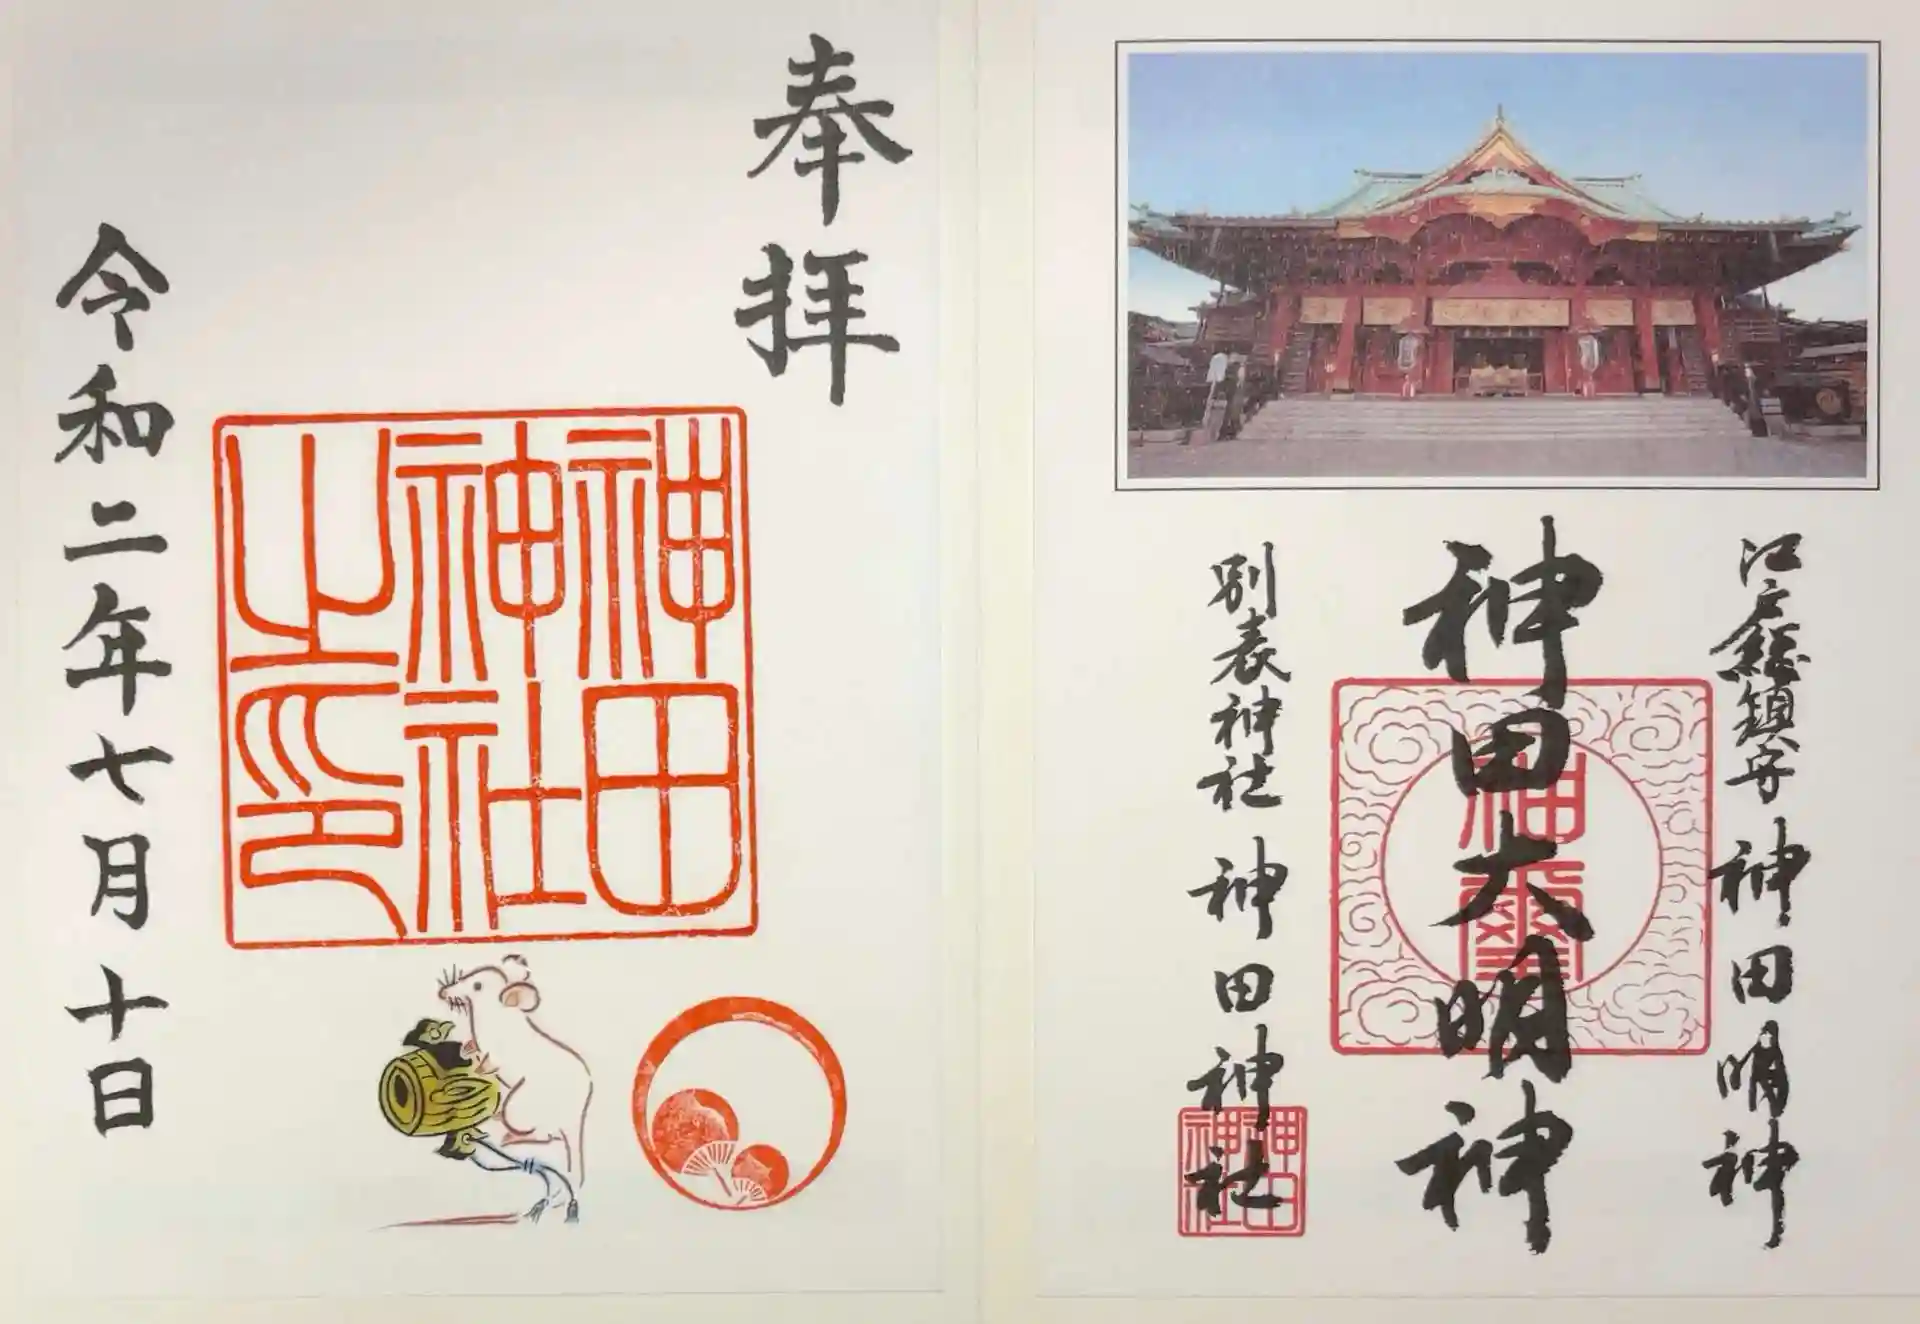 江戸総鎮守 神田明神
神田大明神
神璽
別表神社 神田神社
神田神社
奉拝
神田神社之印
令和二年七月十日